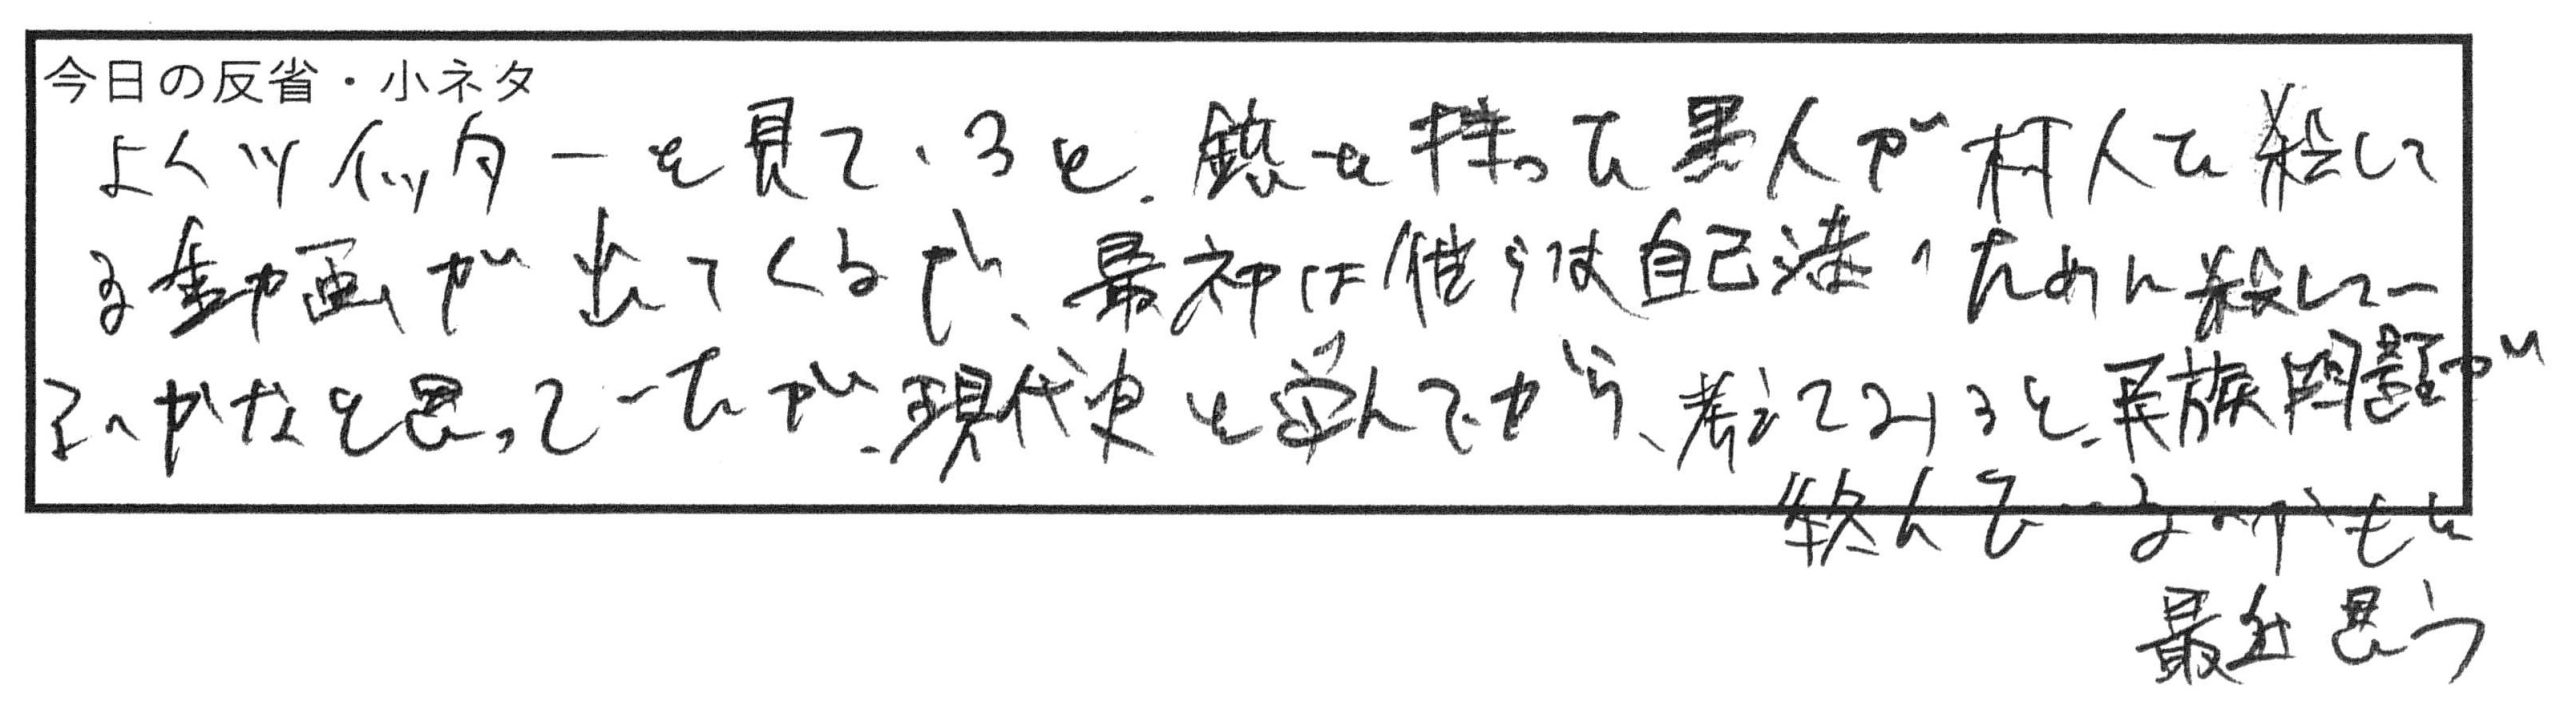 今日の反省・小ネタ
よくツイッターを見ていると、銃を持った黒人が村人を殺して
る動画が出てくるが、最初は彼らは自己満のために殺してい
るのかなと思っていたが、現代史を学んでから、考えてみると、民族問題が
絡んでいるのかもと
最近思う